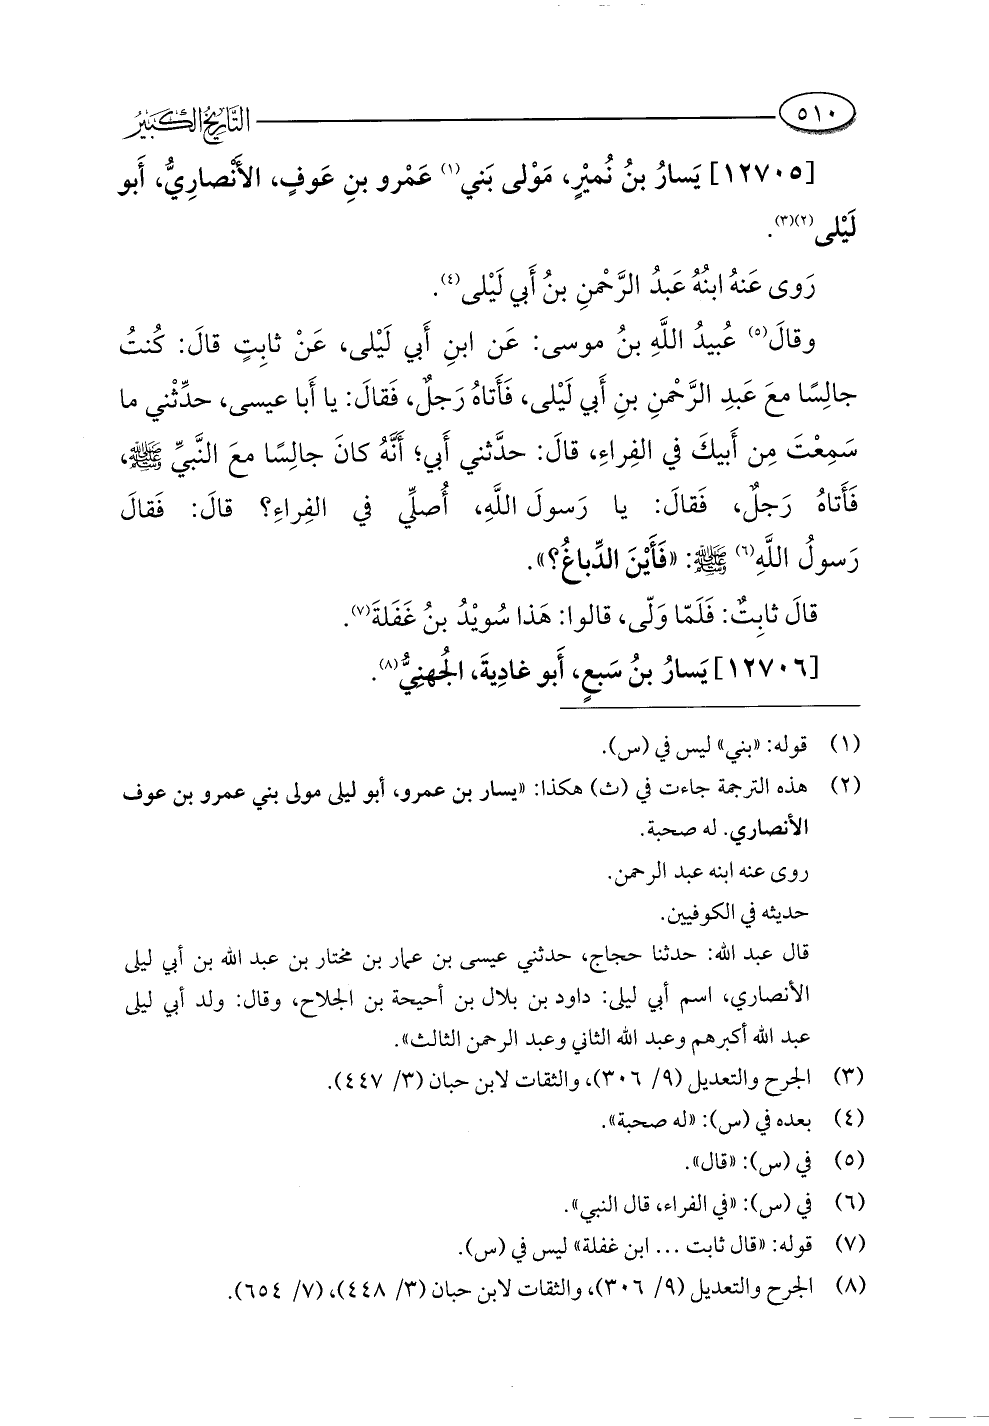 ٥١٠ التَّارِيخُ الكَبِيرُ
[١٢٧٠٥] يَسارُ بنُ نُميْرٍ، مَوْلى بَني(١) عَمْرو بنِ عَوفٍ، الأَنْصارِيُّ، أَبو
لَيْلى(٢)(٣).
رَوى عَنهُ ابنُهُ عَبدُ الرَّحْمنِ بنُ أَبي لَيْلى(٤).
وقالَ(٥) عُبيدُ اللَّهِ بنُ موسى: عَن ابنِ أَبي لَيْلى، عَنْ ثابِتٍ قالَ: كُنتُ
جالِسًا معَ عَبدِ الرَّحْمنِ بنِ أَبي لَيْلى، فَأَتاهُ رَجلٌ، فَقالَ: يا أَبا عيسى، حدِّثْني ما
سَمِعْتَ مِن أَبيكَ في الفِراءِ، قالَ: حدَّثني أَبي؛ أَنَّهُ كانَ جالِسًا معَ النَّبيِّ ﷺ،
فَأَتاهُ رَجلٌ، فَقالَ: يا رَسولَ اللَّهِ، أُصلِّي في الفِراءِ؟ قالَ: فَقالَ
رَسولُ اللَّهِ(٦) ﷺ: «فَأَيْنَ الدِّباغُ؟».
قالَ ثابِتٌ: فَلَمّا وَلّى، قالوا: هَذا سُويْدُ بنُ غَفَلةَ(٧).
[١٢٧٠٦] يَسارُ بنُ سَبعٍ، أَبو غادِيةَ، الجُهنِيُّ(٨).
(١) قوله: «بني» ليس في (س).
(٢) هذه الترجمة جاءت في (ث) هكذا: «يسار بن عمرو، أبو ليلى مولى بني عمرو بن عوف
الأنصاري. له صحبة.
روى عنه ابنه عبد الرحمن.
حديثه في الكوفيين.
قال عبد الله: حدثنا حجاج، حدثني عيسى بن عمار بن مختار بن عبد الله بن أبي ليلى
الأنصاري، اسم أبي ليلى: داود بن بلال بن أحيحة بن الجلاح، وقال: ولد أبي ليلى
عبد الله أكبرهم وعبد الله الثاني وعبد الرحمن الثالث».
(٣) الجرح والتعديل (٩/ ٣٠٦)، والثقات لابن حبان (٣/ ٤٤٧).
(٤) بعده في (س): «له صحبة».
(٥) في (س): «قال».
(٦) في (س): «في الفراء، قال النبي».
(٧) قوله: «قال ثابت ... ابن غفلة» ليس في (س).
(٨) الجرح والتعديل (٩/ ٣٠٦)، والثقات لابن حبان (٣/ ٤٤٨)، (٧/ ٦٥٤).